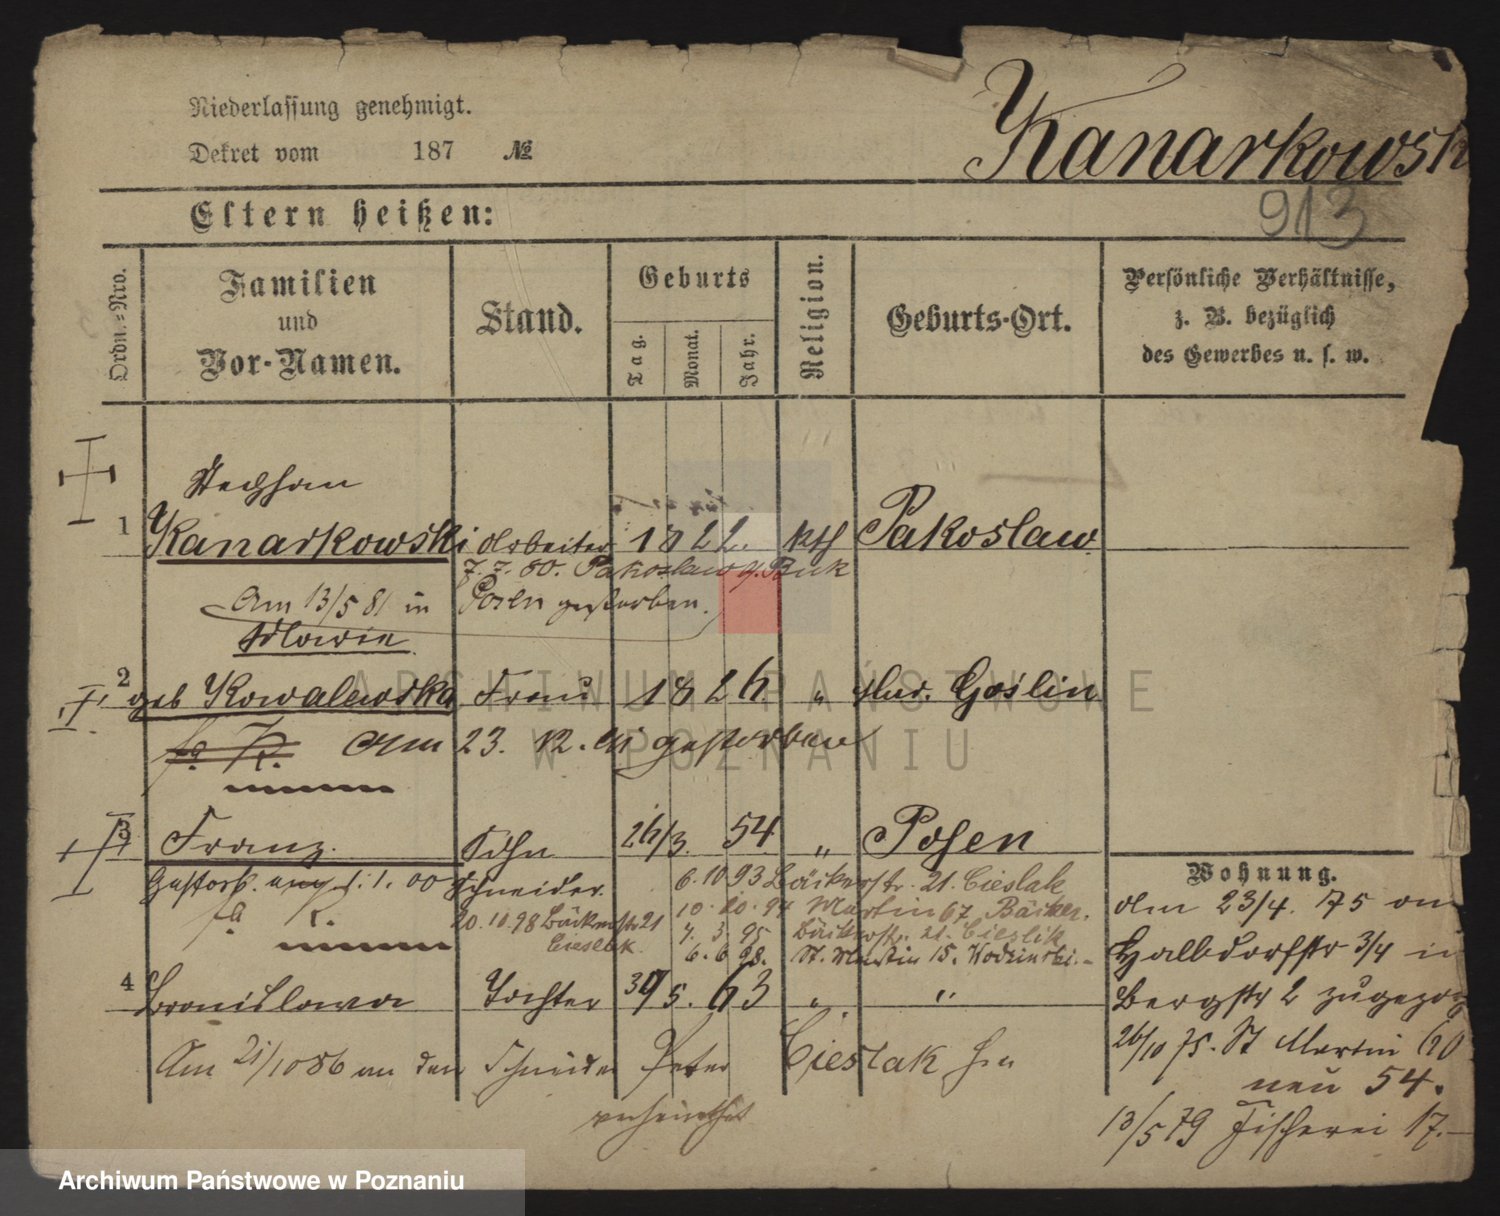 Niederlassung genehmigt.
Dekret vom 187 №
Kanarkowski
913
Eltern heißen:
Ordn.-Nro.
Familien
und
Vor-Namen.
Stand.
Geburts
Tag.
Monat.
Jahr.
Religion.
Geburts-Ort.
Persönliche Verhältnisse,
z. B. bezüglich
des Gewerbes u. s. w.
Stephan
1 Kanarkowski Arbeiter 1822. kth Pakoslaw
7.7.80. Pakoslaw q. Buk
Am 13/5 81 in Posen gestorben.
2 geb Kowalewska Frau 1826 " Goslin
Am 23. 12. gestorben
3 Franz Sohn 26/3. 54 " Posen
Gestorb. 1. 00 Schneider.
6.10 93 Bäckerstr. 21. Cieslak
20.10.98 Bäckerstr 21
Cieslak.
10.10.94 Martin 67 Bäcker.
4. 3. 95 Bäckerstr. 21. Cieslik
6. 6 98. St. Martin 15.
4 Bronislawa Tochter 5. 63 " "
Am 21/10 86 an den Schneider Peter Cieslak hier
verheirathet
Wohnung.
Am 23/4. 75 von
Halbdorfstr 3/4 in
Bergstr 2 zugezog
26/10 75. St Martin 60
neu 54.
13/5 79 Fischerei 17.
ARCHIWUM PAŃSTWOWE
W POZNANIU
Archiwum Państwowe w Poznaniu